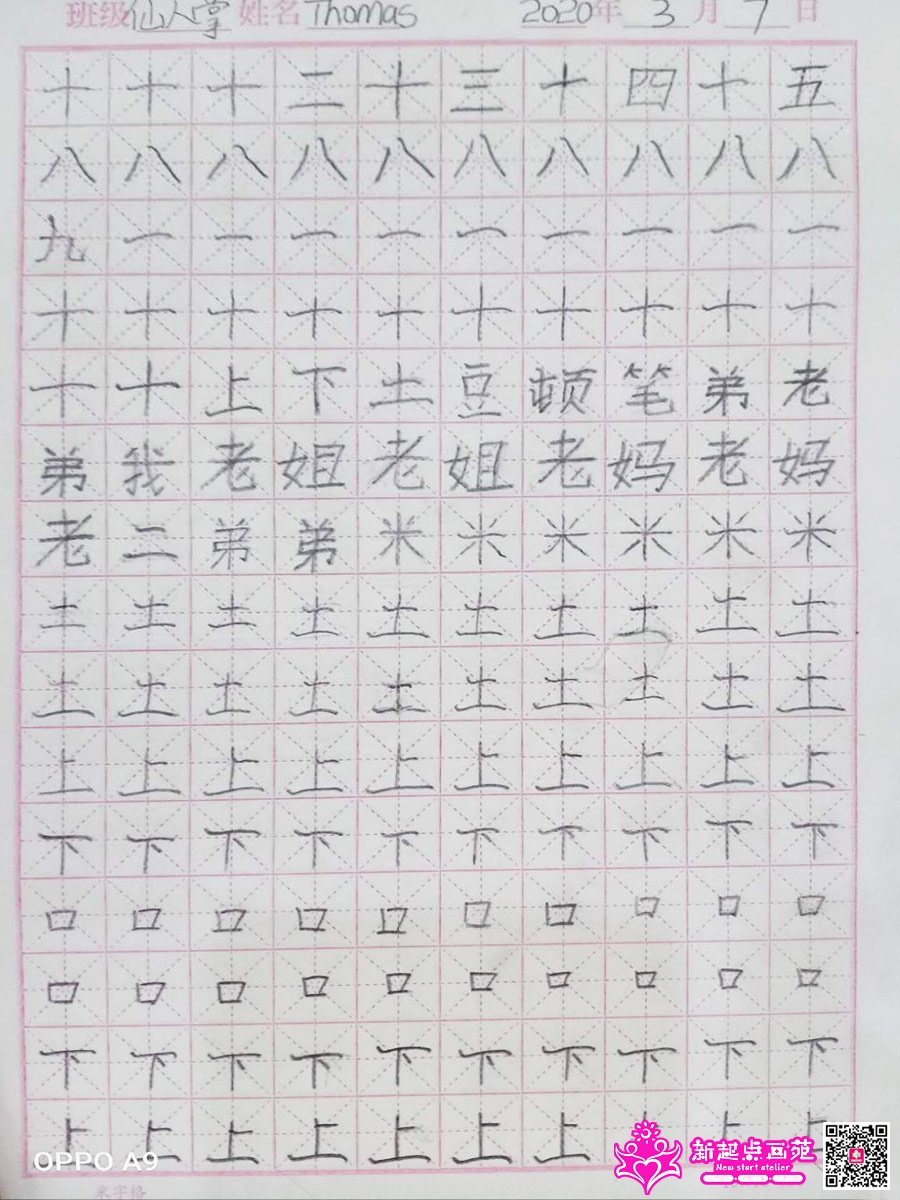 班级 仙人掌 姓名 Thomas 2020年 3月 7日
十十十二十三十四十五
八八八八八八八八八八
九一一一一一一一一一
十十十十十十十十十十
十十上下土豆顿笔弟老
弟我老姐老姐老妈老妈
老二弟弟米米米米米米
土土土土土土土土土土
土土土土土土土土土土
上上上上上上上上上上
下下下下下下下下下下
口口口口口口口口口口
口口口口口口口口口口
下下下下下下下下下下
上上上上上上上上上上
OPPO A9
新起点画苑
New start atelier
米字格